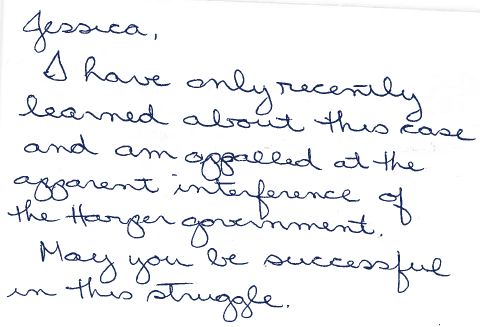 Jessica,
I have only recently
learned about this case
and am appalled at the
apparent interference of
the Harper government.
May you be successful
in this struggle.